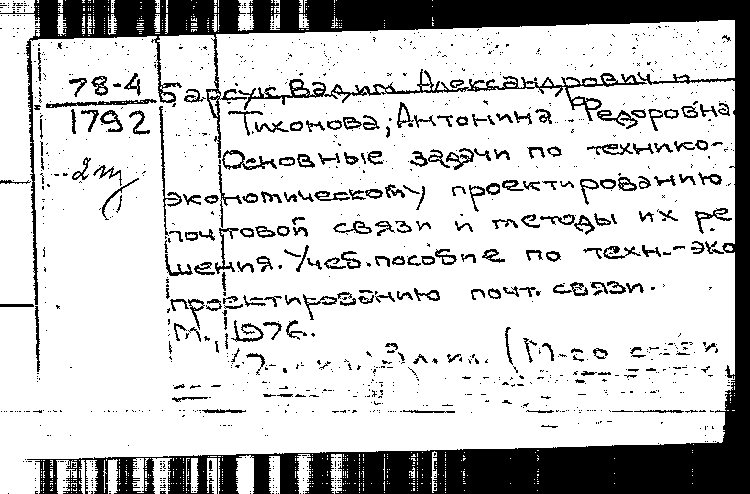 78-4
1792
Барсук, Вадим Александрович и
Тихонова, Антонина Федоровна.
Основные задачи по технико-
экономическому проектированию
почтовой связи и методы их ре
шения. Учеб. пособие по техн.-эко
проектированию почт. связи.
М., 1976.
ил. 3 л. ил. (М-во связи